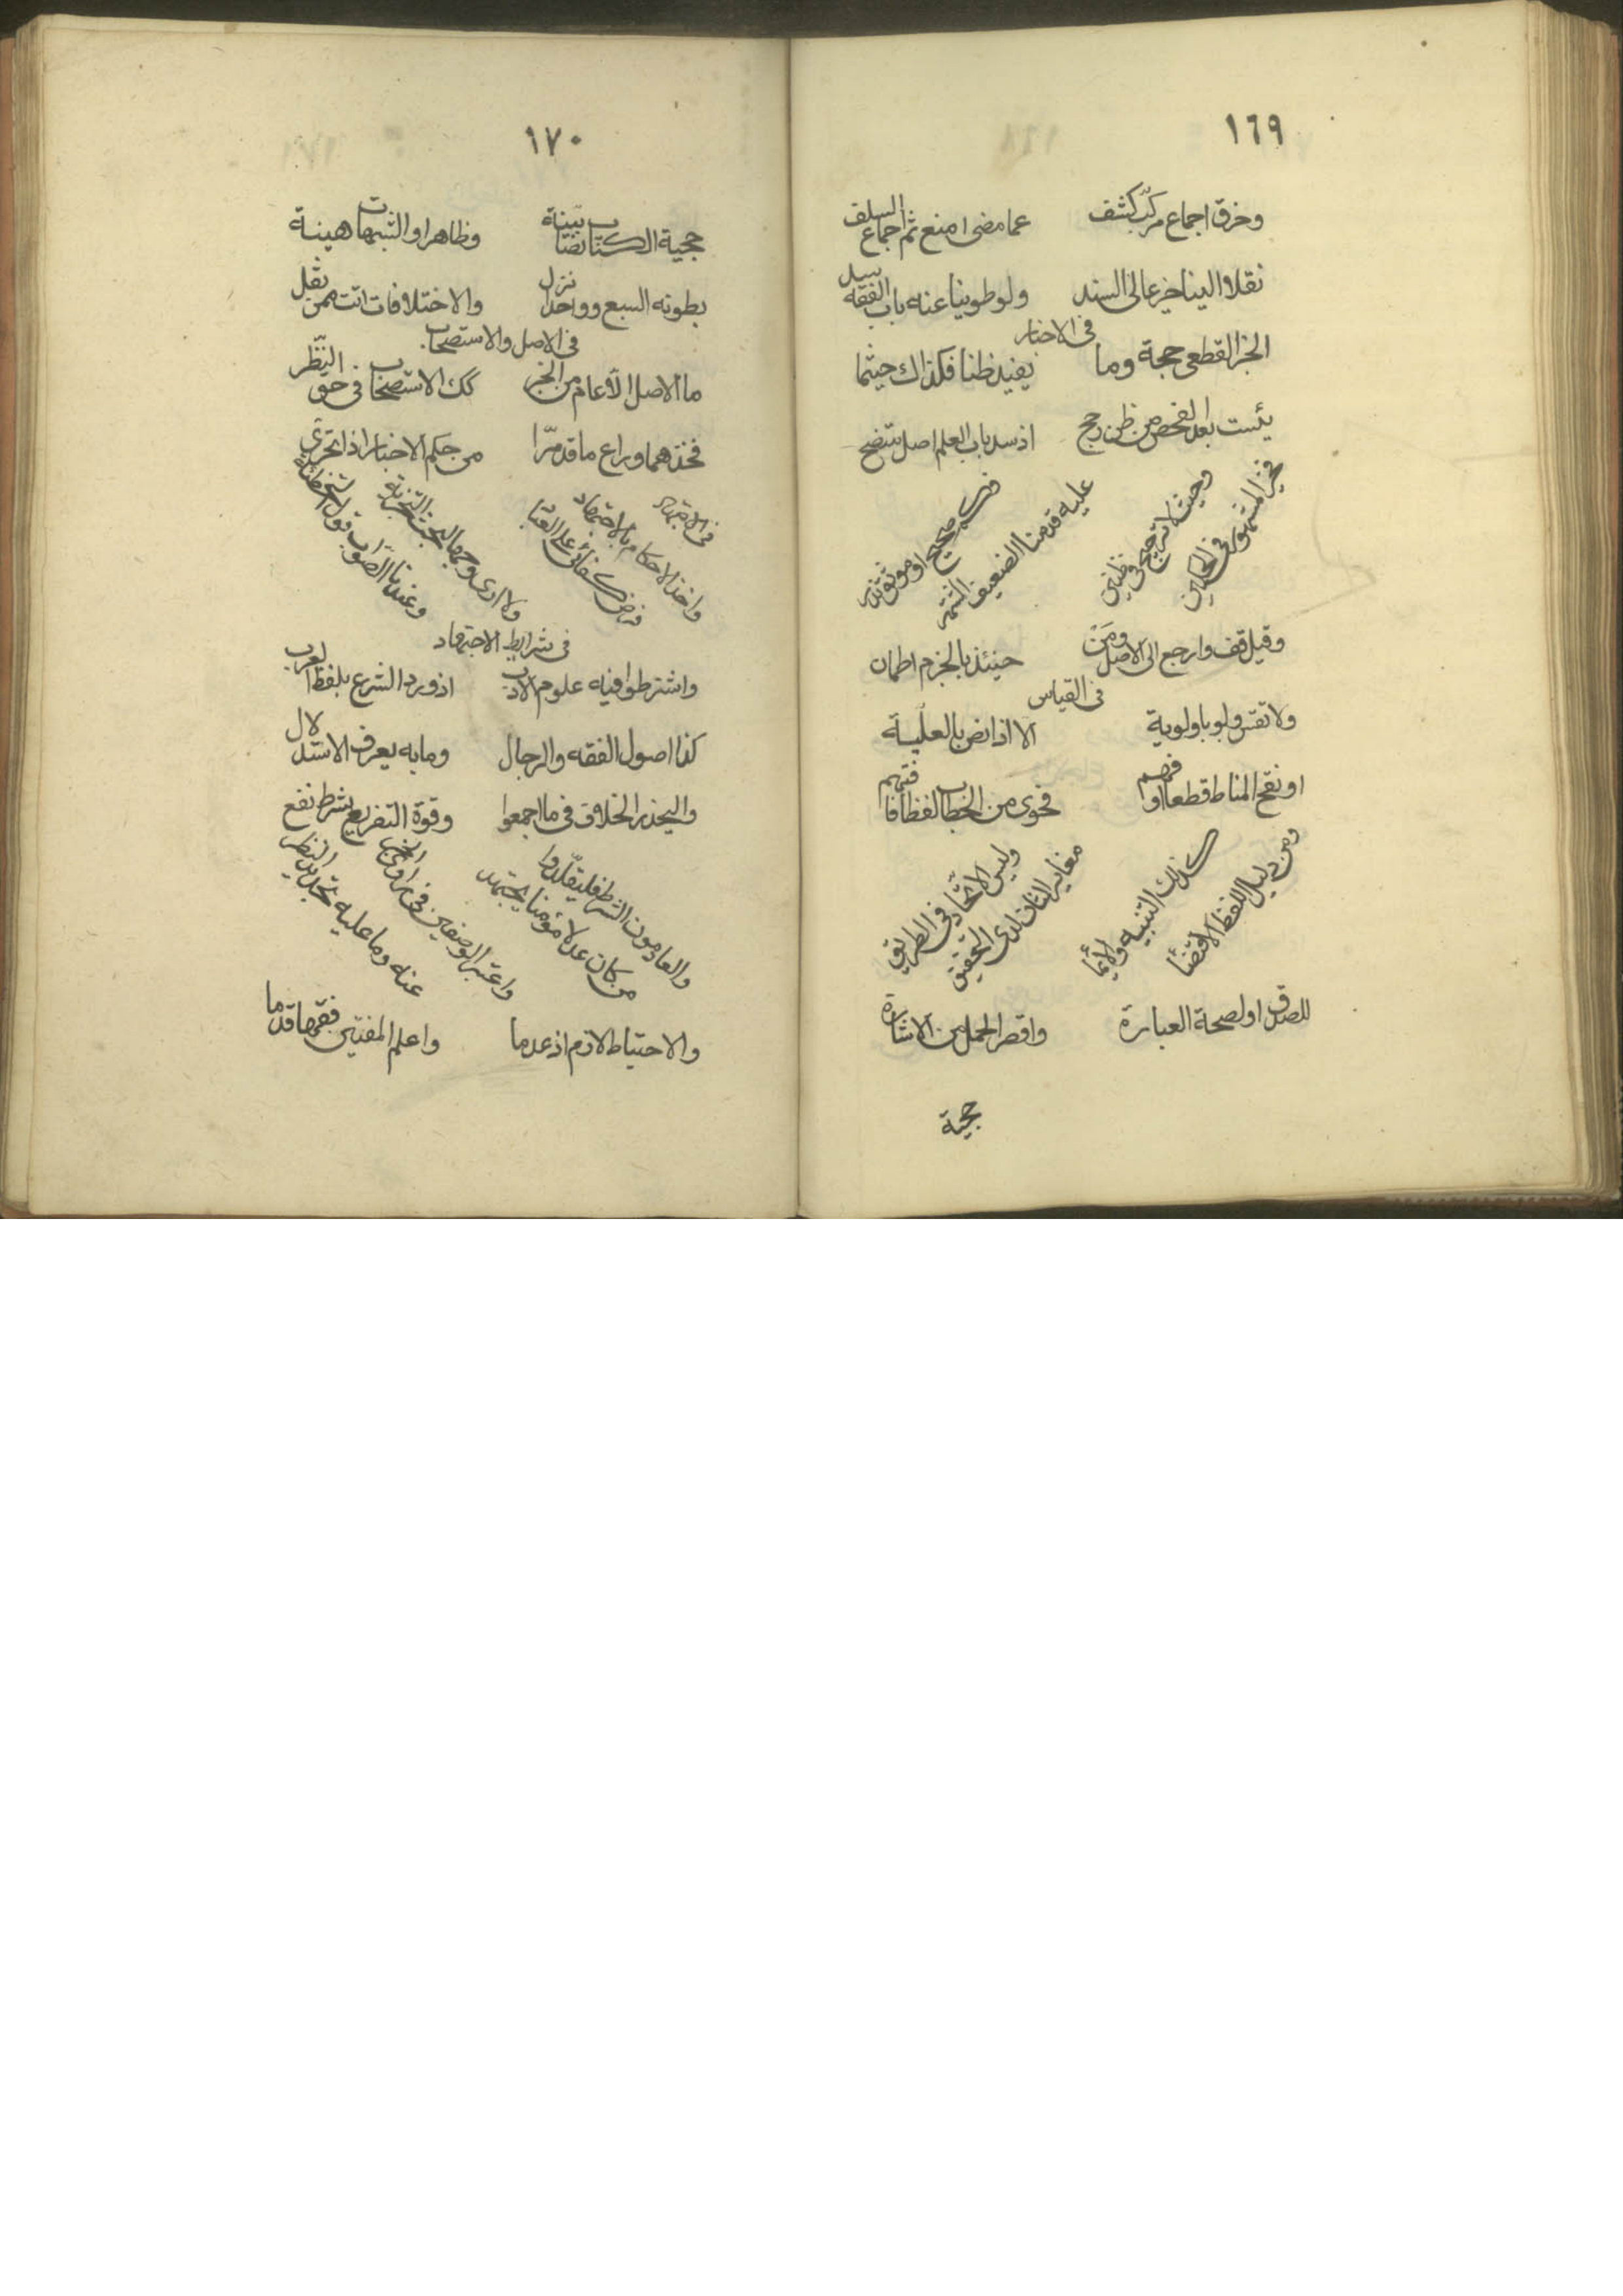 ١٦٩
وخرق اجماع مركب كشف عما مضى امنع ثم اجماع السلف
نقلا الينا خبر عالى السند ولو طوينا عنه باب الفقه
فى الاخبار
الخبر القطعى حجة وما يفيد ظنا فكذاك حيثما
يئست بعد الفحص من ظن رجح اذ سد باب العلم اصل متضح
وحيث لا ترجيح فى ظنين فخير المشهور فى الحكمين
صحيح او موثق عليه قدمنا الضعيف
وقيل قف وارجع الى الاصل ومن حينئذ بالجزم اطمان
فى القياس
ولا تقس ولو باولوية الا اذا نص بالعلية
او نقح المناط قطعا او فهم فحوى من الخطاب لفظا
ومن دليل اللفظ الاقتضا كذلك التنبيه والايما
وليس الاتحاد فى الطريق مغاير الثان لدى التحقيق
للصدق او لصحة العبارة واقصر الحمل من الاشارة
حجية
١٧٠
حجية الكتاب نصا بينة وظاهرا والشبهات هينة
بطونه السبع وواحدا نزل والاختلافات اتت ممن نقل
فى الاصل والاستصحاب
ما الاصل الا عام من الخبر كك الاستصحاب فى حق النظر
فخذهما وراع ما قد مرا من حكم الاخبار اذا تحرى
فى الاجتهاد
واخذ الاحكام بالاجتهاد فرض كفائى على
ولا ارى وجها لبحث التجزية وعندنا الصواب قول التخطئة
فى شرايط الاجتهاد
واشترطوا فيه علوم الادب اذ ورد الشرع بلفظ العرب
كذا اصول الفقه والرجال وما به يعرف الاستدلال
واليحذر الخلاف فى ما اجمعوا وقوة التفريع شرط نفع
والعادمون الشرط فليقلدوا من كان عدلا مؤمنا يجتهد
واعتبر الوصفين فى راوى الخبر عنه وما عليه تجديد النظر
والاحتياط لازم اذ عدما واعلم المفتين فقها قدما